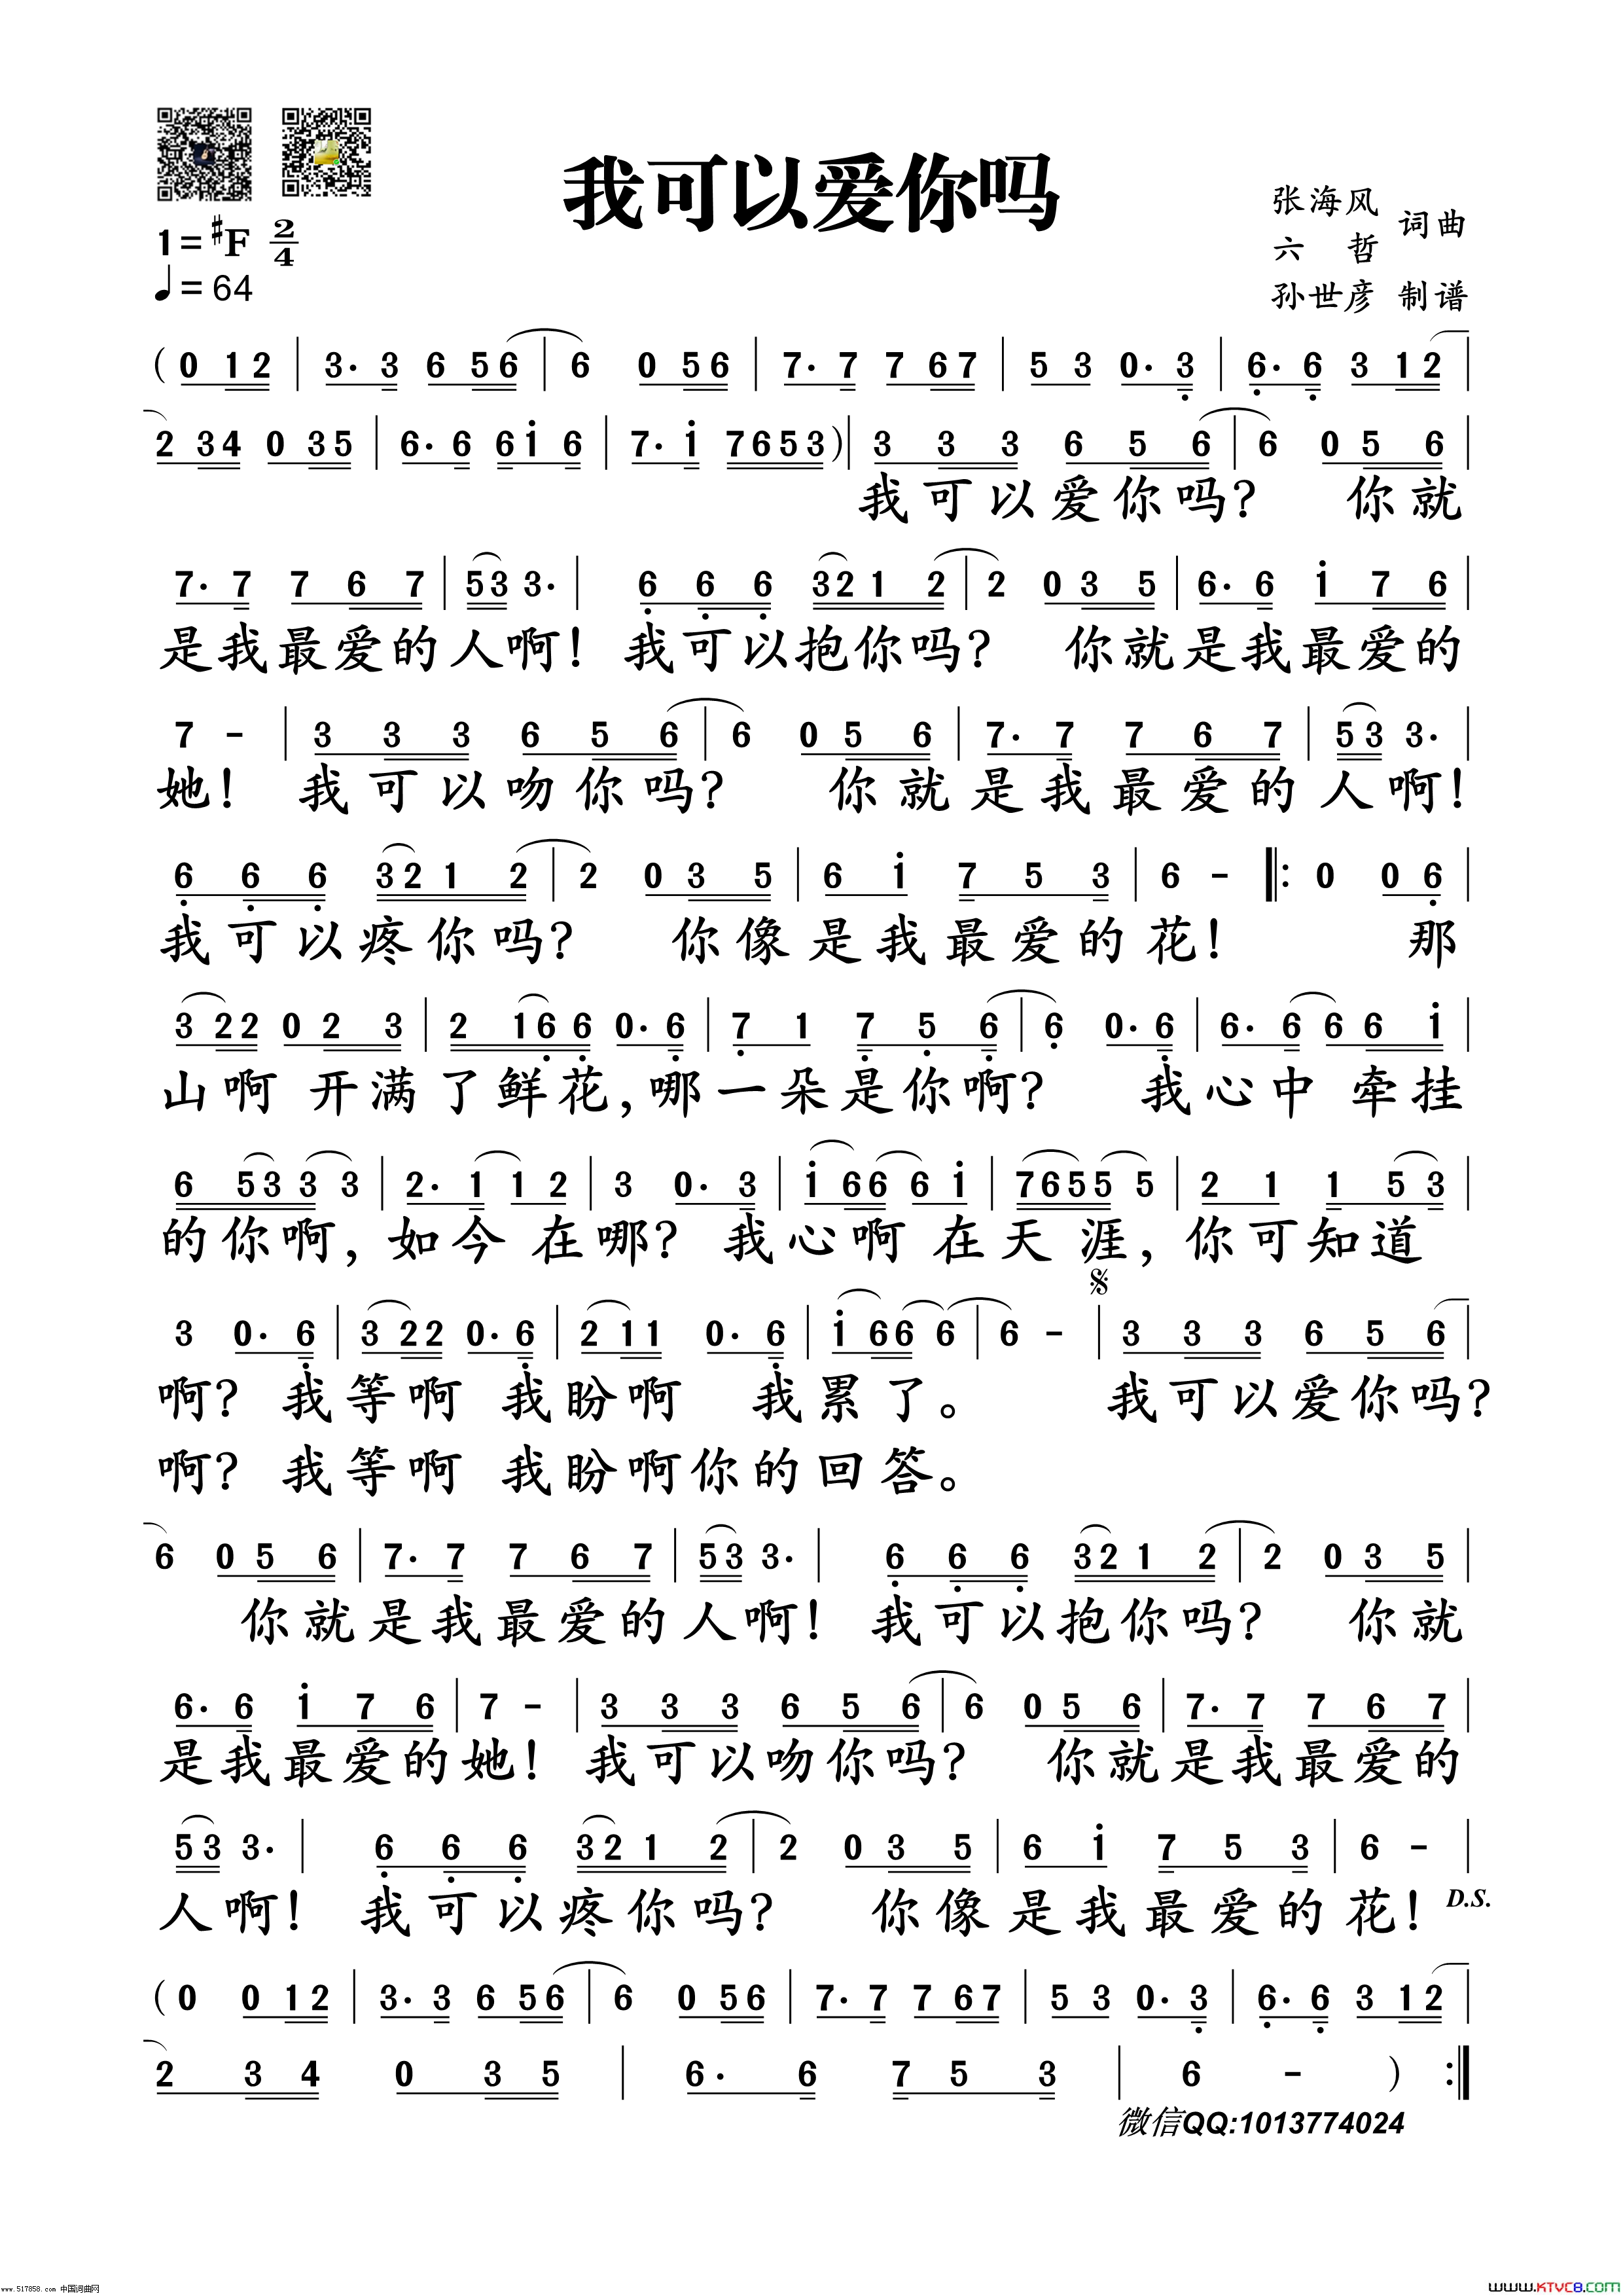 我可以爱你吗
张海风
六 哲 词曲
孙世彦 制谱
1=#F 2/4
♩=64
(0 12 | 3. 3 6 56 | 6 0 56 | 7. 7 7 67 | 5 3 0. 3 | 6. 6 3 12 |
2 34 0 35 | 6. 6 6i 6 | 7. i 7653)| 3 3 3 6 5 6 | 6 0 5 6 |
我可以爱你吗? 你就
7. 7 7 6 7 | 53 3. | 6 6 6 321 2 | 2 0 3 5 | 6. 6 i 7 6 |
是我最爱的人啊! 我可以抱你吗? 你就是我最爱的
7 - | 3 3 3 6 5 6 | 6 0 5 6 | 7. 7 7 6 7 | 53 3. |
她! 我可以吻你吗? 你就是我最爱的人啊!
6 6 6 321 2 | 2 0 3 5 | 6 i 7 5 3 | 6 - ‖: 0 0 6 |
我可以疼你吗? 你像是我最爱的花! 那
3 22 0 2 3 | 2 16 6 0. 6 | 7 1 7 5 6 | 6 0. 6 | 6. 6 6 6 i |
山啊 开满了鲜花,哪一朵是你啊? 我心中 牵挂
6 53 3 3 | 2. 1 1 2 | 3 0. 3 | i 66 6 i | 7655 5 | 2 1 1 5 3 |
的你啊, 如今 在哪? 我心啊 在天 涯, 你可知道
𝄋
3 0. 6 | 3 22 0. 6 | 2 11 0. 6 | i 66 6 | 6 - | 3 3 3 6 5 6 |
啊? 我等啊 我盼啊 我累了。 我可以爱你吗?
啊? 我等啊 我盼啊你的回答。
6 0 5 6 | 7. 7 7 6 7 | 53 3. | 6 6 6 321 2 | 2 0 3 5 |
你就是我最爱的人啊! 我可以抱你吗? 你就
6. 6 i 7 6 | 7 - | 3 3 3 6 5 6 | 6 0 5 6 | 7. 7 7 6 7 |
是我最爱的她! 我可以吻你吗? 你就是我最爱的
53 3. | 6 6 6 32 1 2 | 2 0 3 5 | 6 i 7 5 3 | 6 - |
人啊! 我可以疼你吗? 你像是我最爱的花! D.S.
(0 0 12 | 3. 3 6 56 | 6 0 56 | 7. 7 7 67 | 5 3 0. 3 | 6. 6 3 12 |
2 3 4 0 3 5 | 6. 6 7 5 3 | 6 - ) :‖
微信QQ:1013774024
www.517858.com 中国词曲网
WWW.KTVC8.COM